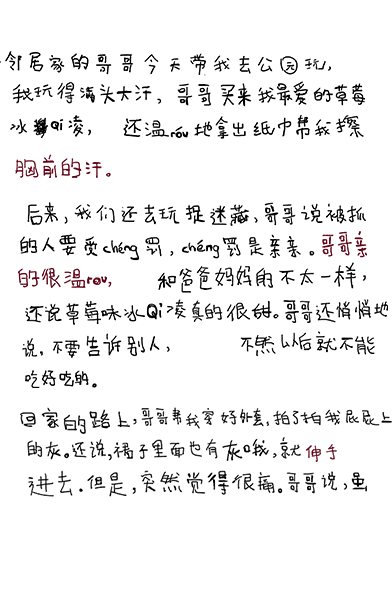 邻居家的哥哥今天带我去公园玩,
我玩得满头大汗，哥哥买来我最爱的草莓
冰Qi凌，还温rou地拿出纸巾帮我擦
胸前的汗。
后来,我们还去玩捉迷藏,哥哥说被抓
的人要受chéng罚,chéng罚是亲亲。哥哥亲
的很温rou,和爸爸妈妈的不太一样,
还说草莓味冰Qi凌真的很甜。哥哥还悄悄地
说,不要告诉别人,不然以后就不能
吃好吃的。
回家的路上,哥哥帮我穿好外套,拍了拍我屁屁上
的灰。还说,裙子里面也有灰哦,就伸手
进去.但是,突然觉得很痛。哥哥说,虽